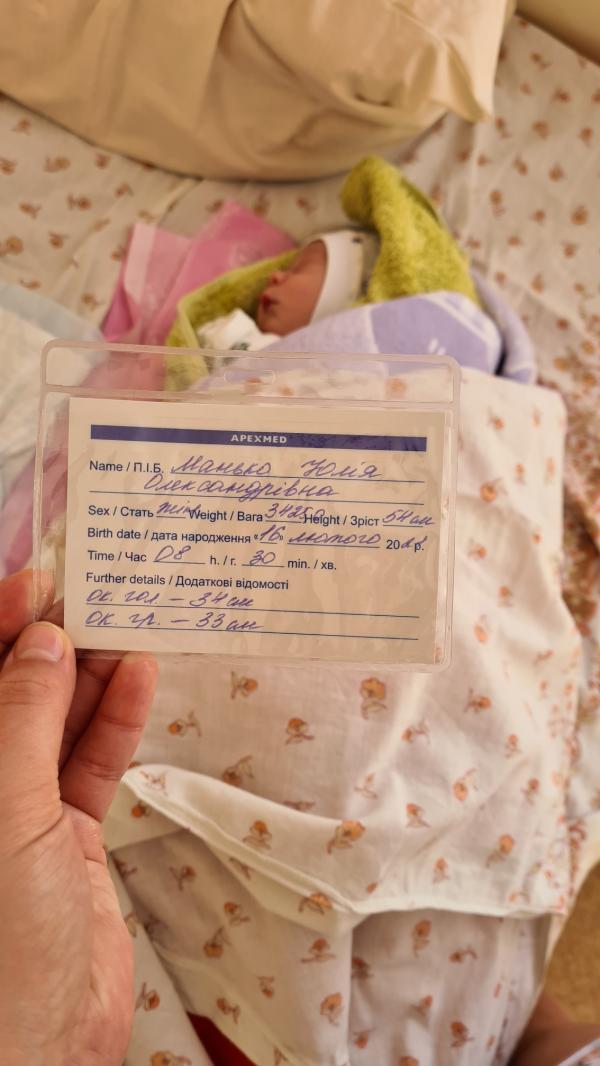 APEXMED
Name / П.І.Б. Манько Юлія
Олександрівна
Sex / Стать Weight / Вага 3425 Height / Зріст 54 см
Birth date / дата народження "16" лютого 20 р.
Time / Час 08 h. / г. 30 min. / хв.
Further details / Додаткові відомості
ок. гол. — 34 см
ок. гр. — 33 см